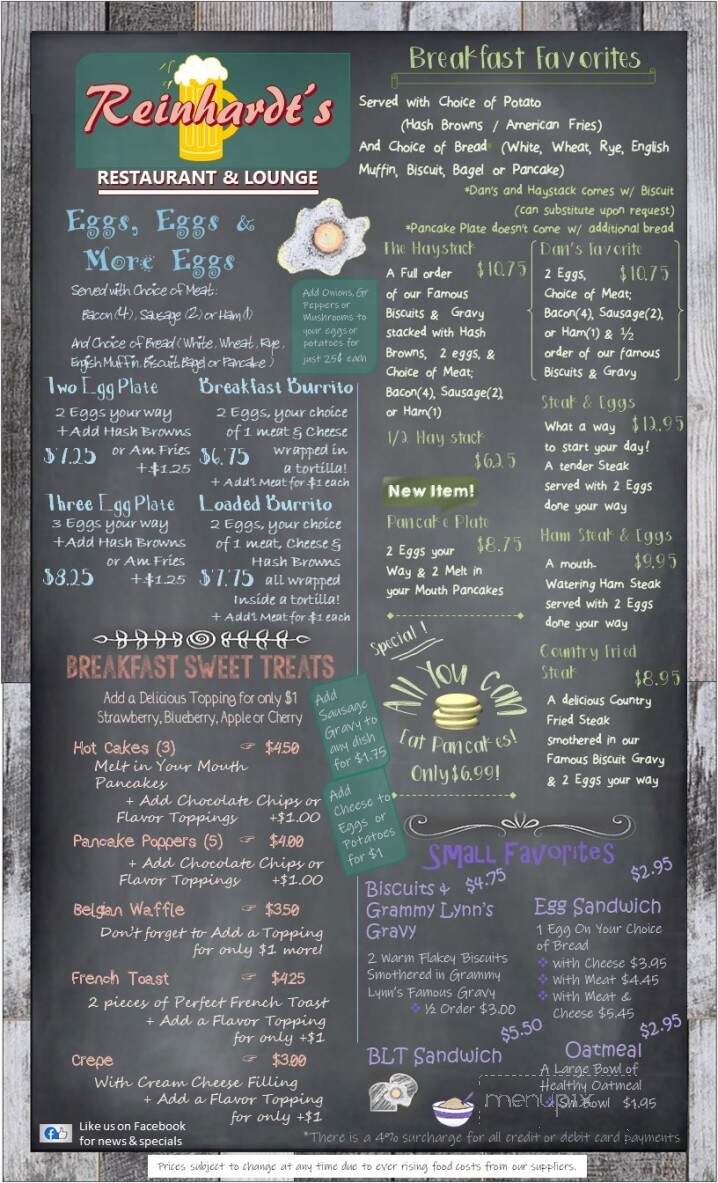 Reinhardt's
RESTAURANT & LOUNGE
Eggs, Eggs &
More Eggs
Served with Choice of Meat:
Bacon (4), Sausage (2) or Ham (1)
And Choice of Bread (White, Wheat, Rye,
English Muffin, Biscuit, Bagel or Pancake)
Add Onions, Gr
Peppers or
Mushrooms to
your eggs or
potatoes for
just 25¢ each
Two Egg Plate
2 Eggs your way
+Add Hash Browns
or Am Fries
$7.25
+$1.25
Breakfast Burrito
2 Eggs, your choice
of 1 meat & Cheese
$6.75 wrapped in
a tortilla!
+ Add'l Meat for $1 each
Three Egg Plate
3 Eggs your way
+Add Hash Browns
or Am Fries
$8.25
+$1.25
Loaded Burrito
2 Eggs, your choice
of 1 meat, Cheese &
Hash Browns
$7.75 all wrapped
Inside a tortilla!
+ Add'l Meat for $1 each
BREAKFAST SWEET TREATS
Add a Delicious Topping for only $1
Strawberry, Blueberry, Apple or Cherry
Hot Cakes (3) ☞ $4.50
Melt in Your Mouth
Pancakes
+ Add Chocolate Chips or
Flavor Toppings +$1.00
Pancake Poppers (5) ☞ $4.00
+ Add Chocolate Chips or
Flavor Toppings +$1.00
Belgian Waffle ☞ $3.50
Don't forget to Add a Topping
for only $1 more!
French Toast ☞ $4.25
2 pieces of Perfect French Toast
+ Add a Flavor Topping
for only +$1
Crepe ☞ $3.00
With Cream Cheese Filling
+ Add a Flavor Topping
for only +$1
Like us on Facebook
for news & specials
Add
Sausage
Gravy to
any dish
for $1.75
Add
Cheese to
Eggs or
Potatoes
for $1
Breakfast Favorites
Served with Choice of Potato
(Hash Browns / American Fries)
And Choice of Bread (White, Wheat, Rye, English
Muffin, Biscuit, Bagel or Pancake)
*Dan's and Haystack comes w/ Biscuit
(can substitute upon request)
*Pancake Plate doesn't come w/ additional bread
The Haystack
A Full order $10.75
of our Famous
Biscuits & Gravy
stacked with Hash
Browns, 2 eggs, &
Choice of Meat;
Bacon(4), Sausage(2),
or Ham(1)
1/2 Hay stack
$6.25
New Item!
Pancake Plate
2 Eggs your $8.75
Way & 2 Melt in
your Mouth Pancakes
Special !
All You Can
Eat Pancakes!
Only $6.99!
Dan's Favorite
2 Eggs, $10.75
Choice of Meat;
Bacon(4), Sausage(2),
or Ham(1) & ½
order of our famous
Biscuits & Gravy
Steak & Eggs
What a way $12.95
to start your day!
A tender Steak
served with 2 Eggs
done your way
Ham Steak & Eggs
A mouth- $9.95
Watering Ham Steak
served with 2 Eggs
done your way
Country Fried
Steak $8.95
A delicious Country
Fried Steak
smothered in our
Famous Biscuit Gravy
& 2 Eggs your way
Small Favorites
Biscuits & $4.75
Grammy Lynn's
Gravy
2 Warm Flakey Biscuits
Smothered in Grammy
Lynn's Famous Gravy
❖ ½ Order $3.00
$5.50
BLT Sandwich
$2.95
Egg Sandwich
1 Egg On Your Choice
of Bread
❖ with Cheese $3.95
❖ with Meat $4.45
❖ with Meat &
Cheese $5.45
$2.95
Oatmeal
A Large Bowl of
Healthy Oatmeal
Sm Bowl $1.95
menupix
*There is a 4% surcharge for all credit or debit card payments
Prices subject to change at any time due to ever rising food costs from our suppliers.